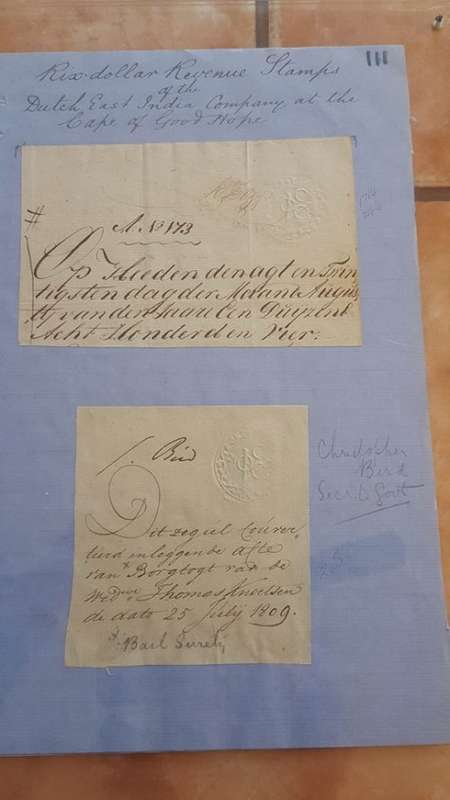 Rix-dollar Revenue Stamps
of the
Dutch East India Company at the
Cape of Good Hope
A. No 173
Op Heeden den agt en Twin
tigsten dag der Maand Augus
tij van den Jaare Een Duyzent
Acht Honderd en Vier:
C. Bird
Dit zegul couver
teerd inleggende acte
van x Borgtogt van de
Wed. Thomas Knoetsen
de dato 25 July 1809.
x. Bail Surety
Christopher
Bird
Sec. to Govt